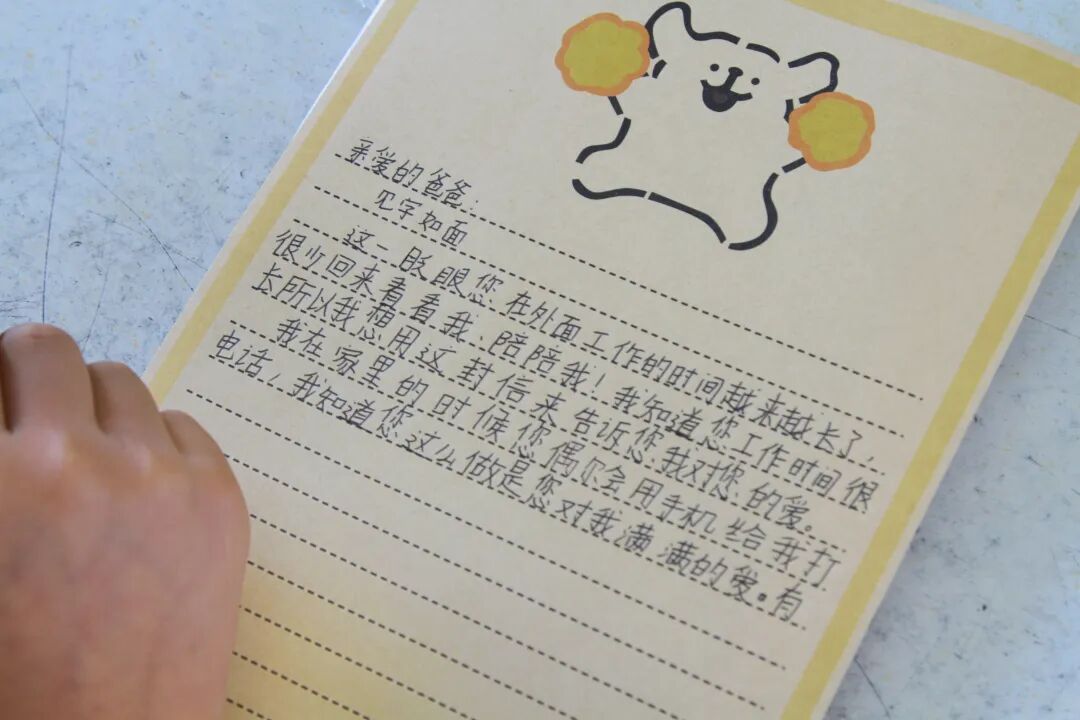 亲爱的爸爸:
见字如面
这一眨眼您在外面工作的时间越来越长了,
很少回来看看我、陪陪我!我知道您工作时间很
长所以我想用这封信来告诉您我对您的爱。
我在家里的时候您偶尔会用手机给我打
电话,我知道您这么做是您对我满满的爱。有